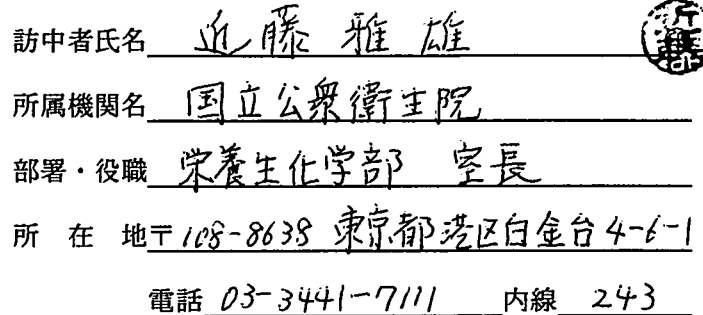 訪中者氏名 近藤 雅雄
所属機関名 国立公衆衛生院
部署・役職 栄養生化学部 室長
所 在 地 〒108-8638 東京都港区白金台4-6-1
電話 03-3441-7111 内線 243